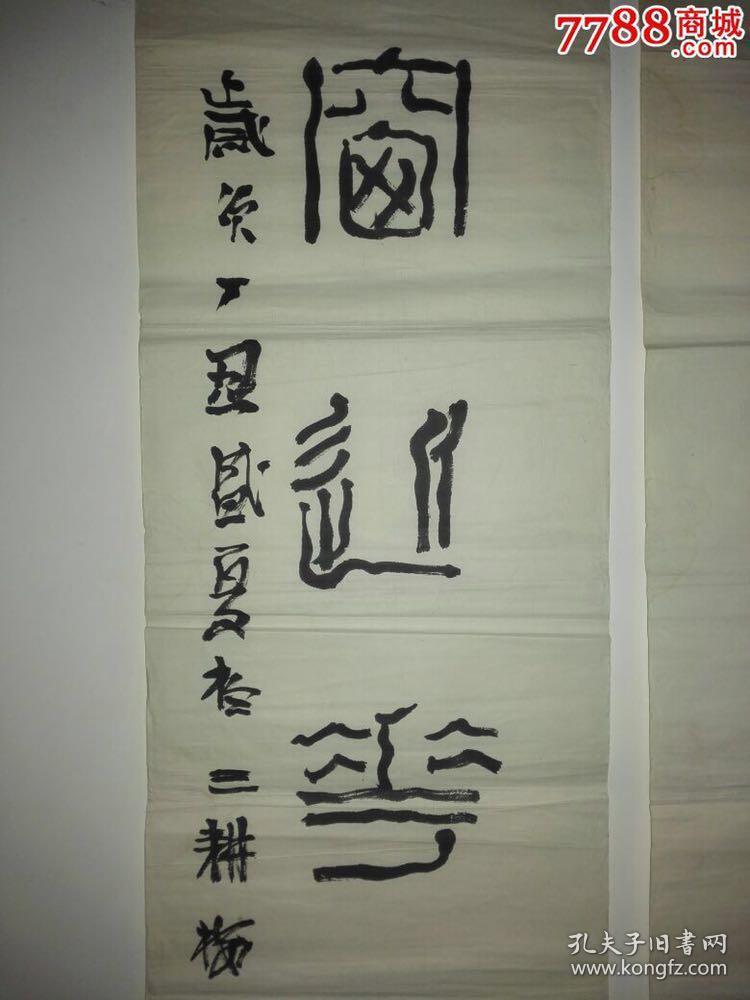 窗近華
歲次丁丑盛夏於三耕梅
7788商城
.com
孔夫子旧書网
www.kongfz.com